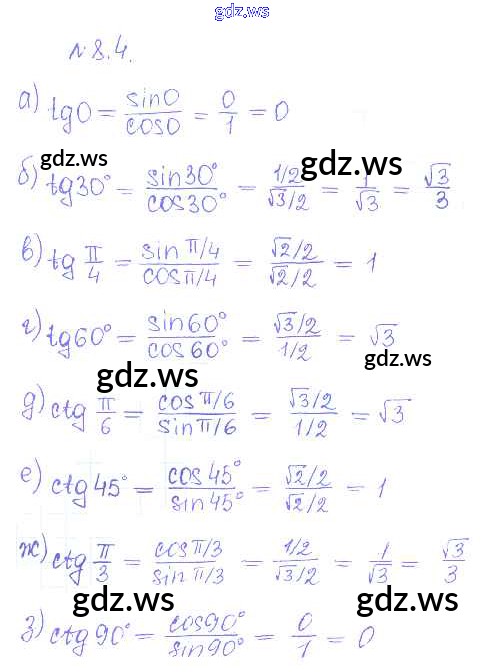 gdz.ws
№8.4.
а) tg0 = sin0/cos0 = 0/1 = 0
gdz.ws gdz.ws
б) tg30° = sin30°/cos30° = (1/2)/(√3/2) = 1/√3 = √3/3
в) tg π/4 = (sin π/4)/(cos π/4) = (√2/2)/(√2/2) = 1
г) tg60° = sin60°/cos60° = (√3/2)/(1/2) = √3
gdz.ws gdz.ws
д) ctg π/6 = (cos π/6)/(sin π/6) = (√3/2)/(1/2) = √3
е) ctg45° = cos45°/sin45° = (√2/2)/(√2/2) = 1
ж) ctg π/3 = (cos π/3)/(sin π/3) = (1/2)/(√3/2) = 1/√3 = √3/3
gdz.ws gdz.ws
з) ctg90° = cos90°/sin90° = 0/1 = 0